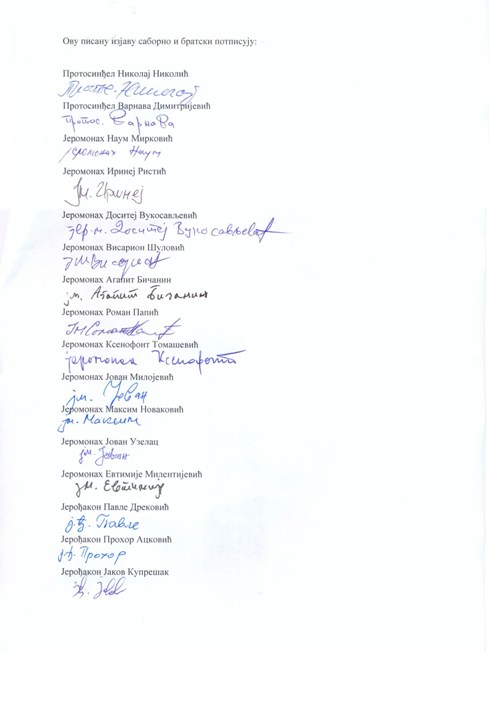 Ову писану изјаву саборно и братски потписују:
Протосинђел Николај Николић
Протосинђел Варнава Димитријевић
Протос. Варнава
Јеромонах Наум Мирковић
јеромонах Наум
Јеромонах Иринеј Ристић
Јм. Иринеј
Јеромонах Доситеј Вукосављевић
јер. м. Доситеј Вукосављевић
Јеромонах Висарион Шуловић
Јеромонах Агапит Бичанин
јм. Агапит Бичанин
Јеромонах Роман Папић
Јеромонах Ксенофонт Томашевић
јеромонах Ксенофонт
Јеромонах Јован Милојевић
јм. Јован
Јеромонах Максим Новаковић
јм. Максим
Јеромонах Јован Узелац
јм. Јован
Јеромонах Евтимије Милентијевић
јм. Евтимије
Јерођакон Павле Дрековић
ј.ђ. Павле
Јерођакон Прохор Ацковић
ј.ђ. Прохор
Јерођакон Јаков Купрешак